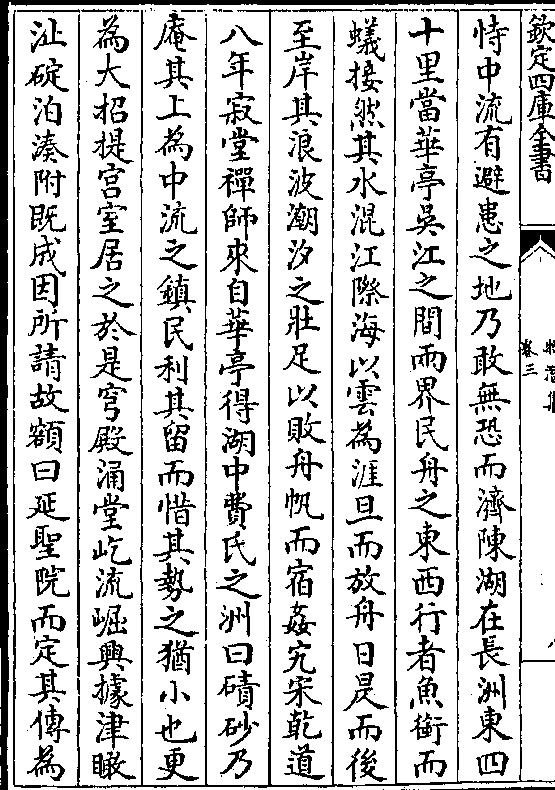 欽定四庫全書
卷三
恃中流有避患之地乃敢無恐而濟陳湖在長洲東四
十里當華亭吳江之間兩界民舟之東西行者魚銜而
蟻接然其水混江際海以雲為涯旦而放舟日昃而後
至岸其浪波潮汐之壯足以敗舟帆而宿姦宄宋乾道
八年寂堂禪師來自華亭得湖中費氏之洲曰磧砂乃
庵其上為中流之鎮民利其留而惜其勢之猶小也更
為大招提宫室居之於是穹殿涌堂屹流崛興據津瞰
沚碇泊湊附既成因所請故額曰延聖院而定其傳為